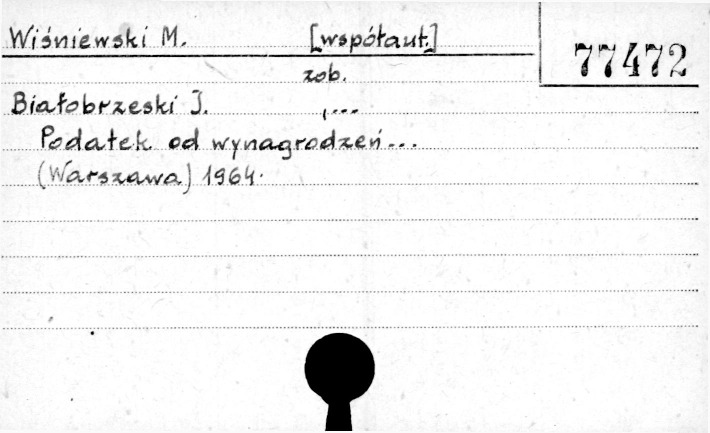 Wiśniewski M. [współaut.]
77472
zob.
Białobrzeski J. , ...
Podatek od wynagrodzeń...
(Warszawa) 1964.